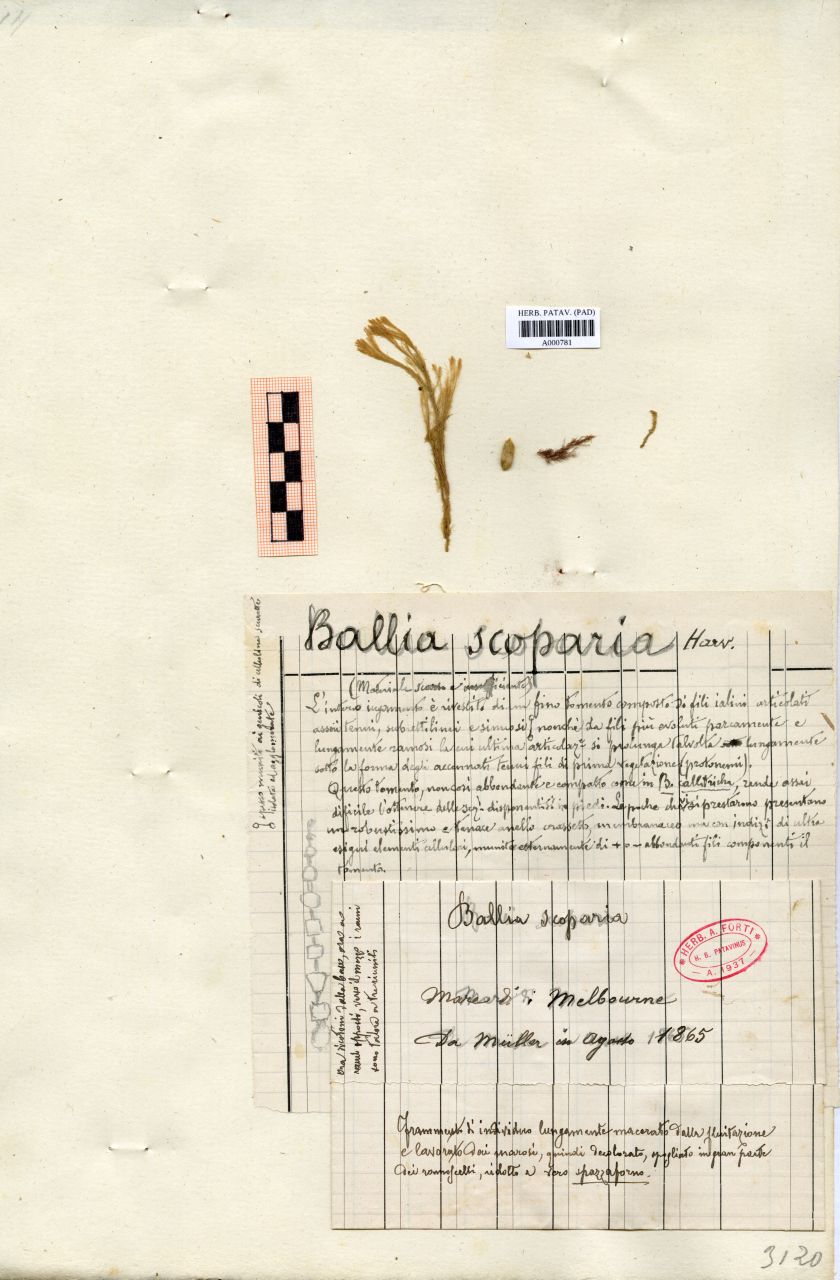 HERB. PATAV. (PAD)
A000781
Ballia scoparia Harv.
(Materiale scarso e insufficiente)
L'intero ingromento è rivestito di un fino tomento composto di fili ialini articolati
assai tenui, subrettilinei e sinuosi, nonché da fili più evoluti parcamente e
lungamente ramosi la cui ultima articolaz. si prolunga talvolta lungamente
sotto la forma degli accennati tenui fili di prima vegetazione (protonemi).
Questo tomento, non così abbondante e compatto come in B. callitricha, rende assai
difficile l'ottenere delle sez. disponentisi in piedi. Le poche che si prestarono presentano
un robustissimo e tenace anello crassetto, membranaceo ma con indizi di ultra
esigui elementi cellulari, munito esternamente di + o - abbondanti fili componenti il
tomento.
spesso muniti ai genicoli di cellulone
isolate od agglomerate
Ballia scoparia
Mare di Melbourne
Da Müller in Agosto 1865
HERB. A. FORTI
H. B. PATAVINUS
A. 1937
ora ricotomi dalla base, ora a
rami opposti, verso il mezzo i rami
sono talora a tre riuniti
Frammento di individuo lungamente macerato dalla fluitazione
e lavorato dai marosi, quindi decolorato, spogliato in gran parte
dei ramoscelli, ridotto a vero spazzaforno.
3120